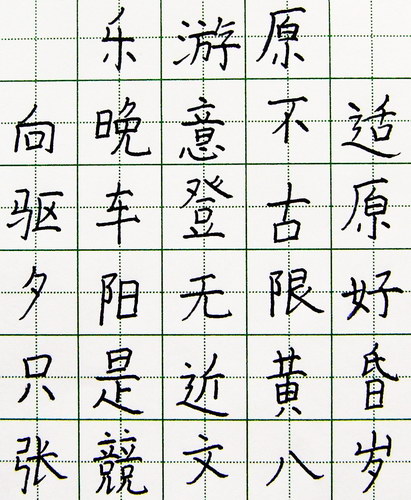 乐游原
向晚意不适
驱车登古原
夕阳无限好
只是近黄昏
张競文八岁